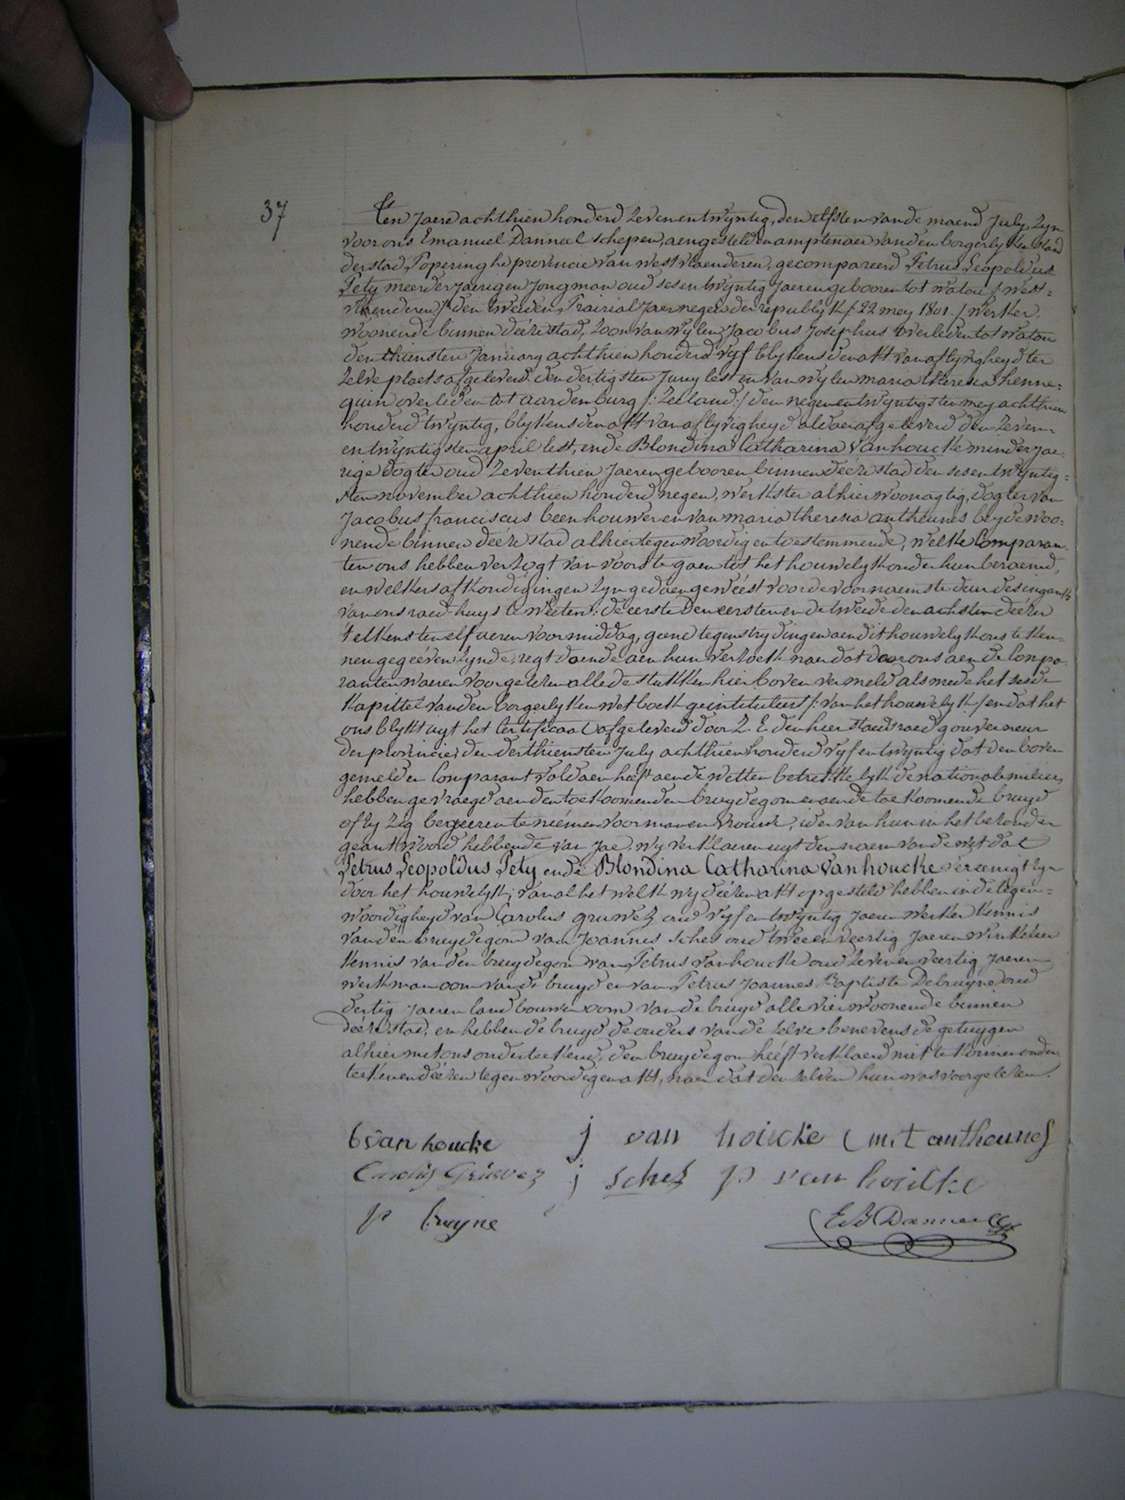 37
Ten Jaere achthien honderd Zevenentwyntig, den elfsten van de maend July, Zyn
voor ons Emanuel Danneel schepen, aengesteld en amptenaer van den borgerlyken staed
der stad Poperinghe provincie van westvlaenderen, gecompareerd Petrus Leopoldus
Pety meerderjaerigen Jongman oud sesentwyntig Jaeren gebooren tot watou /:west=
vlaenderen:/ den tweeden Prairial Jaer negen der republyk /:22 mey 1801:/ werker
woonende binnen deéze stad, Zoon van wylen Jacobus Josephus overleden tot watou
den thiensten January achthien honderd vyf blykens den akt van aflyvigheyd ter
Zelve plaets afgeleverd den dertigsten Juny lest en van wylen maria theresia henne=
quin overleden tot aardenburg /:Zeeland:/ den negenentwyntigsten mey achthien
honderd twyntig, blykens den akt van aflyvigheyd aldaer afgeleverd den Zeven=
entwyntigsten april lest, ende Blondina Catharina Vanhoucke minderjae=
rige dogter oud Zeventhien Jaeren gebooren binnen deéze stad den sesentwyntig=
sten november achthien honderd negen, werkster alhier woonagtig, dogter van
Jacobus franciscus beenhouwer en van maria theresia antheunes beyde woo=
nende binnen deéze stad alhier tegenwoordig en toestemmende, welke Comparan=
ten ons hebben verzogt van voorts te gaen tot het houwelyk onder hun beraemd,
en welkers afkondigingen Zyn gedaen geweést voor de voornaemste deur des ingank
van ons raedhuys te weéten: de eerste den eersten en de tweede den achsten deézer
telkens ten elf ueren voormiddag, geene tegenstrydingen aen dit houwelyk ons te ken=
nen gegeéven Zynde, regt doende aen hun verzoek naer dat door ons aen de Compa=
ranten waeren voorgelezen alle de stukken hier boven vermeld als mede het sesde
Kapittel van den borgerlyken wetboek geintituleert /:van het houwelyk:/ en dat het
ons blykt uyt het Certificaat afgeleverd door Z. E. den heer staedsraed gouverneur
der provincie, den derthiensten July achthien honderd vyfentwyntig dat den boven
gemelden Comparant voldaen heeft aen de wetten betrekkelyk de nationale militie,
hebben gevraegd aen den toekoomenden bruydegom en aen de toekoomende bruyd
of Zy Zig begeeren te neémen voor man en vrouw, ider van hun in het bezonder
geantwoord hebbende van Jae, wy verklaeren uyt den naem van de wet dat
Petrus Leopoldus Pety ende Blondina Catharina Vanhoucke vereenigt Zyn
door het houwelyk, van al het welk wy deézen akt opgesteld hebben in de tegen=
woordigheyd van Carolus gruwez oud vyfentwyntig Jaeren werker kennis
van den bruydegom van Joannes schez oud tweeenveertig Jaeren winkelier
kennis van den bruydegom van Petrus Vanhoucke oud Zevenenveertig Jaeren
werkman oom van de bruyd en van Petrus Joannes Baptiste Debruyne oud
dertig Jaeren landbouwer oom van de bruyd alle vier woonende binnen
deéze stad, en hebben de bruyd de ouders van de Zelve benevens de getuygen
alhier met ons onderteekend, den bruydegom heéft verklaerd niet te konnen onder=
teekenen deézen tegenwoordigen akt, naer dat den zelven hun was voorgelezen.
b van houcke j van houcke m t antheunes
Carolus Gruwez j schez p van houcke
p bruyne E. Danneel